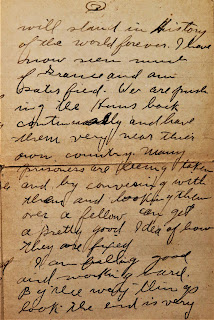 2
will stand in History
of the world forever. I have
now seen much
of France and am
satisfied. We are push
ing the Huns back
continually and have
them very near their
own country. Many
prisoners are being taken
and by conversing with
them and looking them
over a fellow can get
a pretty good Idea of how
they are fixed
I am feeling good
and working hard.
By the way things
look the end is very